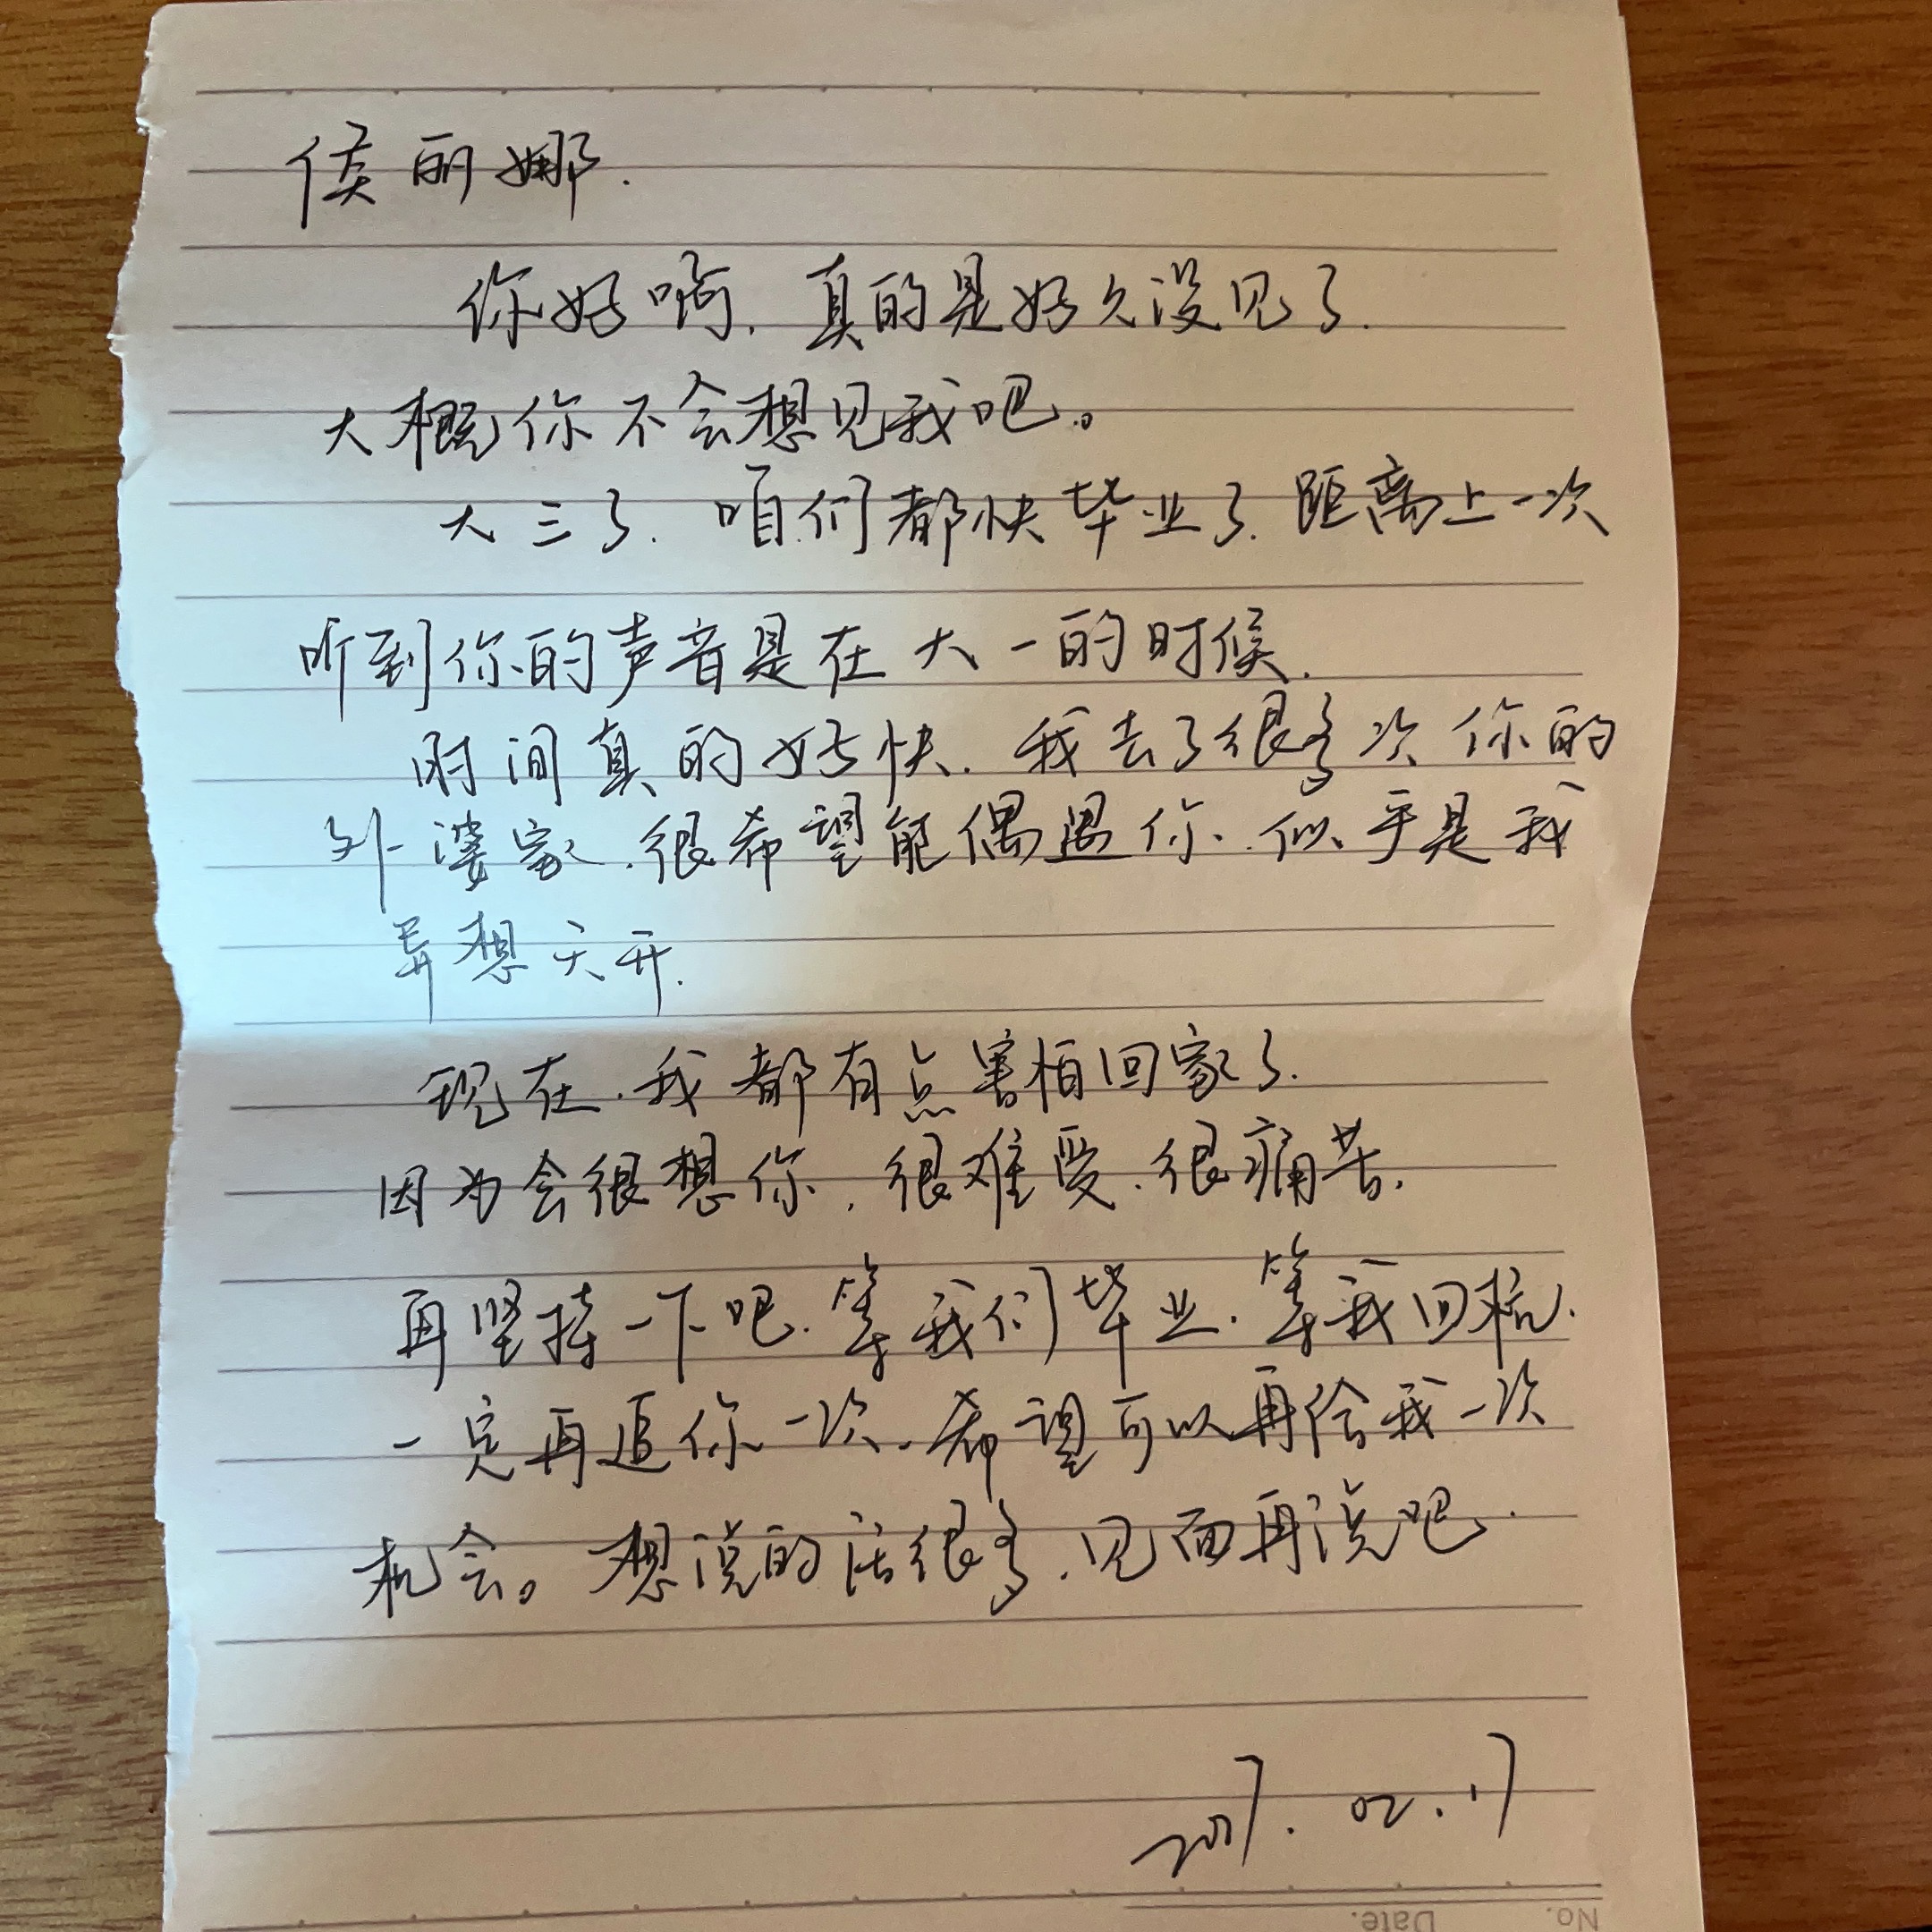 侯丽娜.
你好啊, 真的是好久没见了.
大概你不会想见我吧。
大三了. 咱们都快毕业了. 距离上一次
听到你的声音是在大一的时候.
时间真的好快. 我去了很多次你的
外婆家. 很希望能偶遇你. 似乎是我
异想天开.
现在. 我都有点害怕回家了.
因为会很想你, 很难受. 很痛苦.
再坚持一下吧. 等我们毕业. 等我回杭.
一定再追你一次. 希望可以再给我一次
机会。想说的话很多. 见面再说吧.
2017. 02. 17
No.
Date.